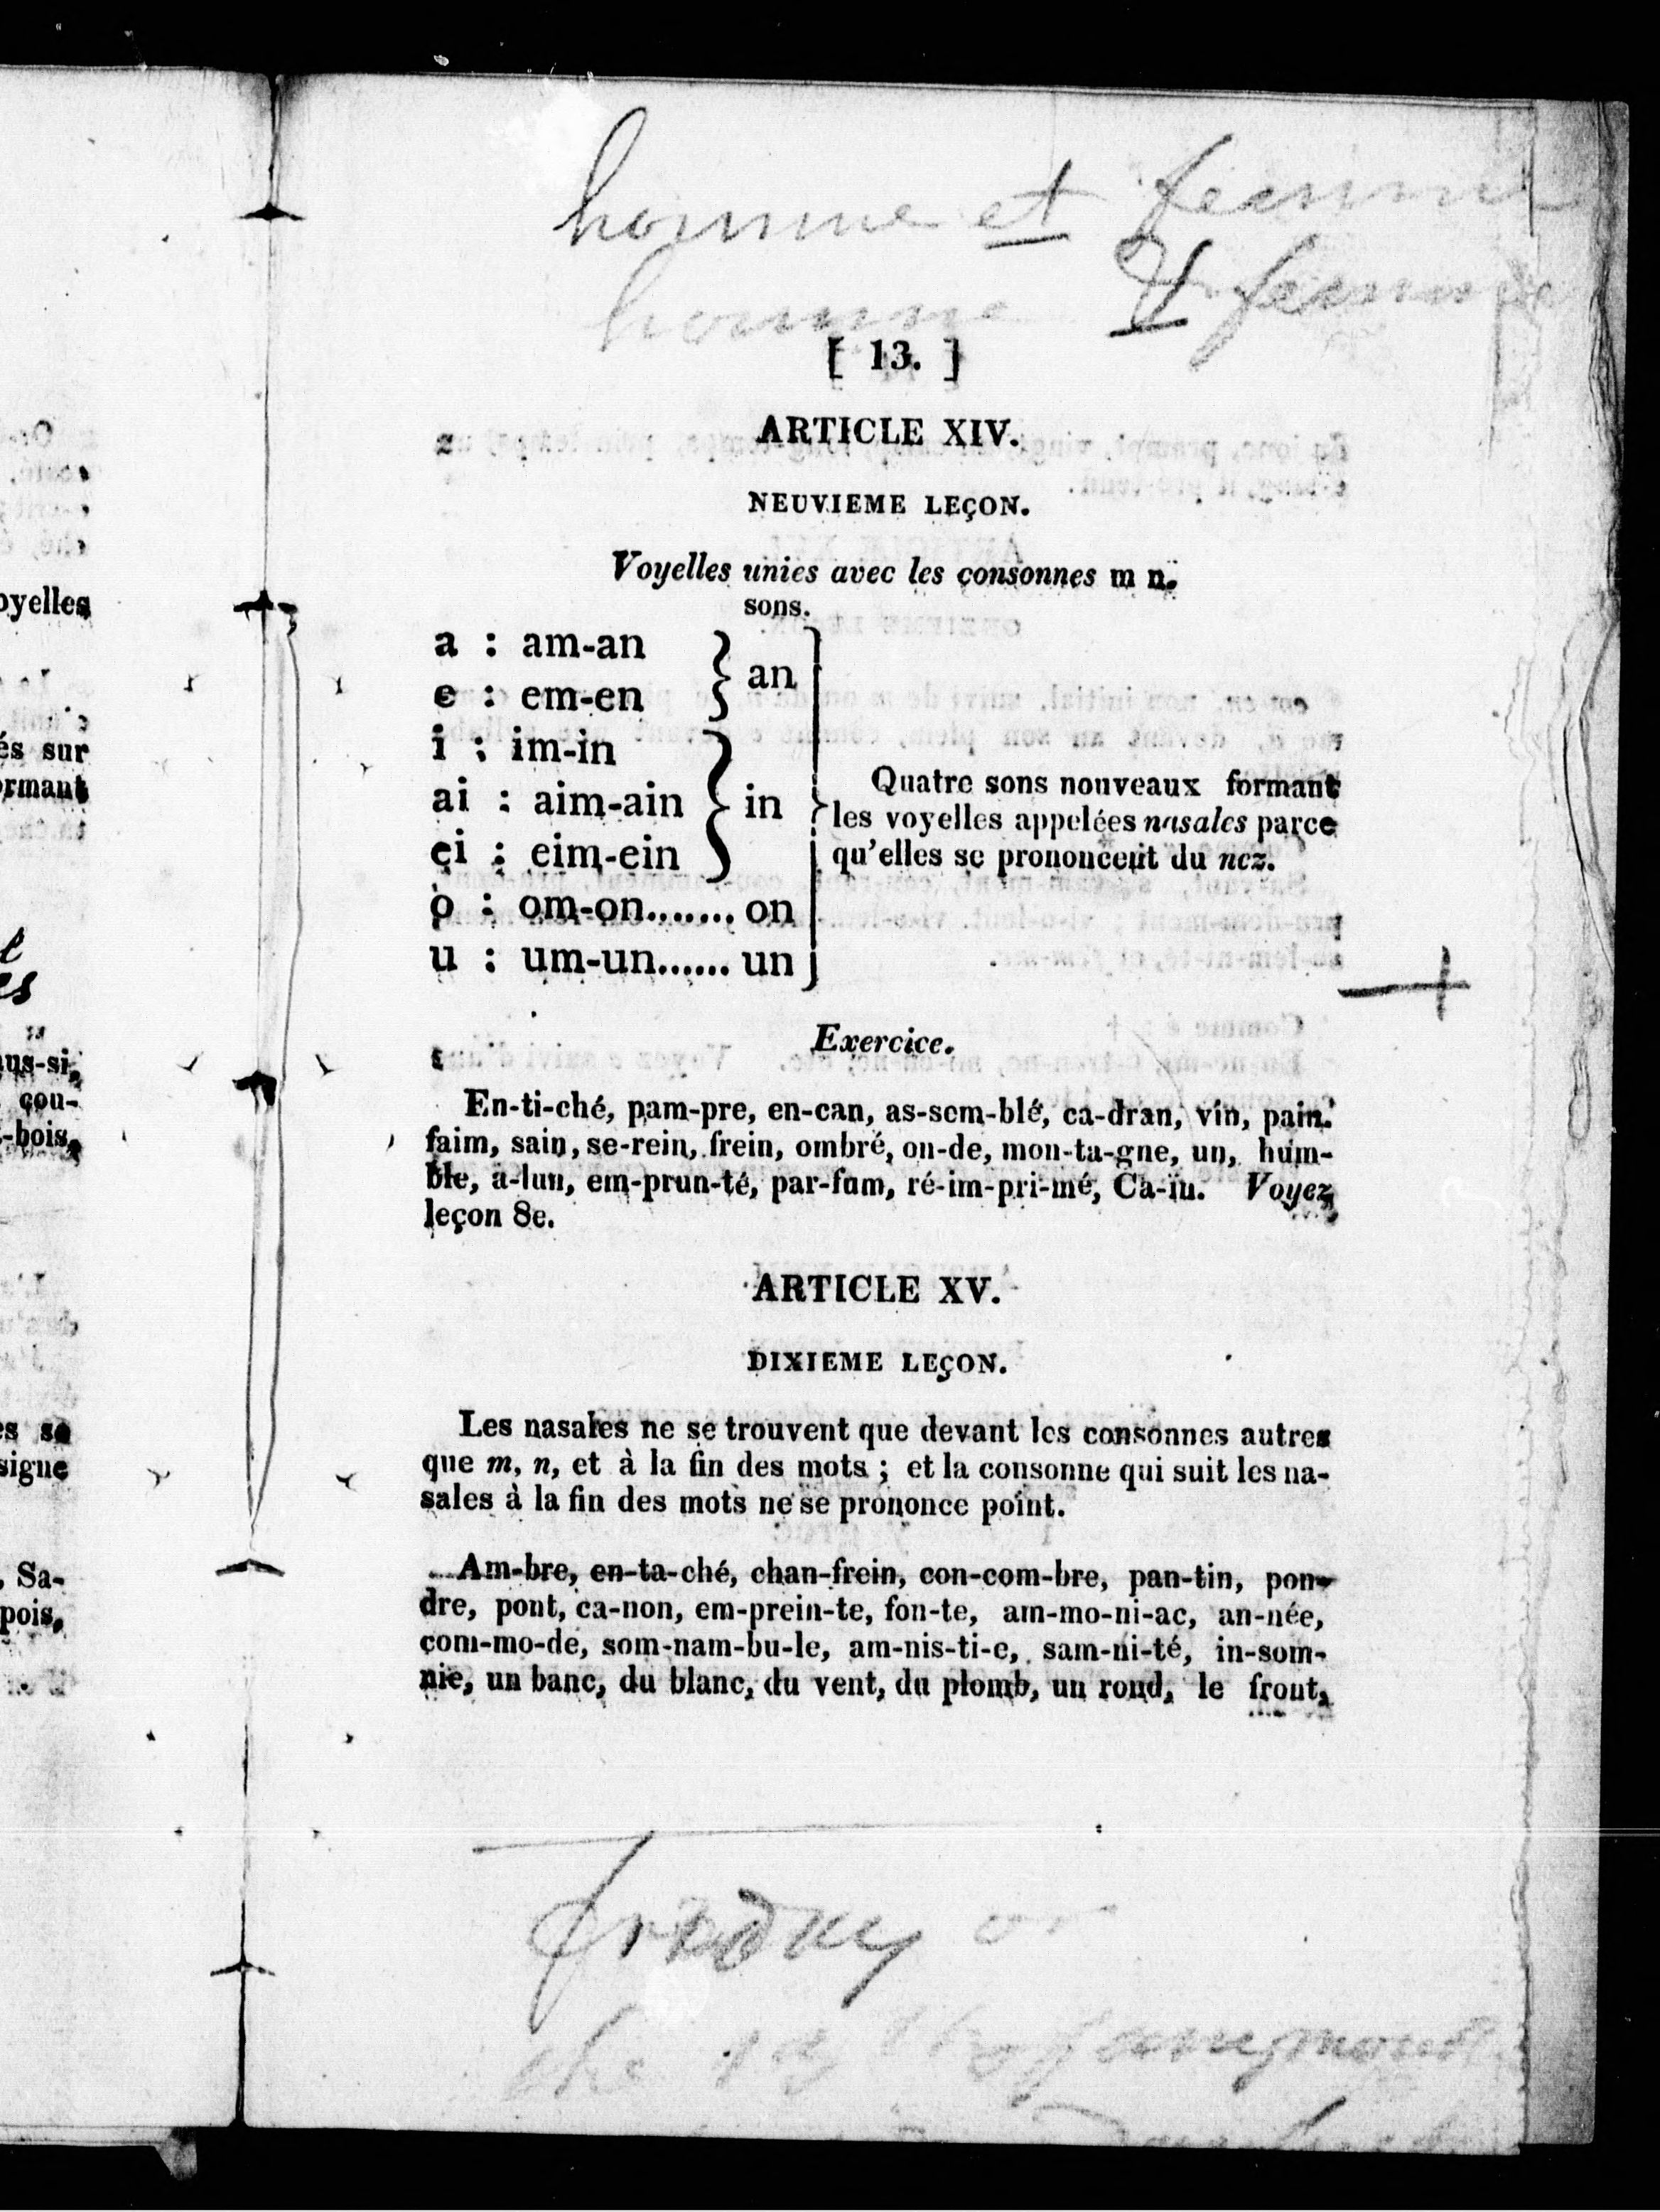 homme et femme
homme & femme
[ 13. ]
ARTICLE XIV.
NEUVIEME LEÇON.
Voyelles unies avec les consonnes m n.
sons.
a : am-an
e : em-en
an
i : im-in
ai : aim-ain
ei : eim-ein
in
o : om-on....... on
u : um-un...... un
Quatre sons nouveaux formant
les voyelles appelées nasales parce
qu'elles se prononcent du nez.
Exercice.
En-ti-ché, pam-pre, en-can, as-sem-blé, ca-dran, vin, pain.
faim, sain, se-rein, frein, ombré, on-de, mon-ta-gne, un, hum-
ble, a-lun, em-prun-té, par-fum, ré-im-pri-mé, Ca-ïn. Voyez
leçon 8e.
ARTICLE XV.
DIXIEME LEÇON.
Les nasales ne se trouvent que devant les consonnes autres
que m, n, et à la fin des mots ; et la consonne qui suit les na-
sales à la fin des mots ne se prononce point.
Am-bre, en-ta-ché, chan-frein, con-com-bre, pan-tin, pon-
dre, pont, ca-non, em-prein-te, fon-te, am-mo-ni-ac, an-née,
com-mo-de, som-nam-bu-le, am-nis-ti-e, sam-ni-té, in-som-
nie, un banc, du blanc, du vent, du plomb, un rond, le front,
oyelles
és sur
ormant
aus-si,
cou-
-bois,
es se
signe
, Sa-
pois,